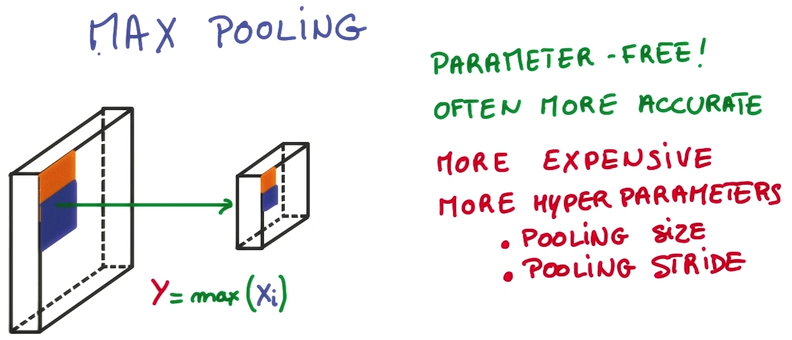 MAX POOLING
PARAMETER-FREE!
OFTEN MORE ACCURATE
MORE EXPENSIVE
MORE HYPER PARAMETERS
• POOLING SIZE
• POOLING STRIDE
Y = max(Xi)